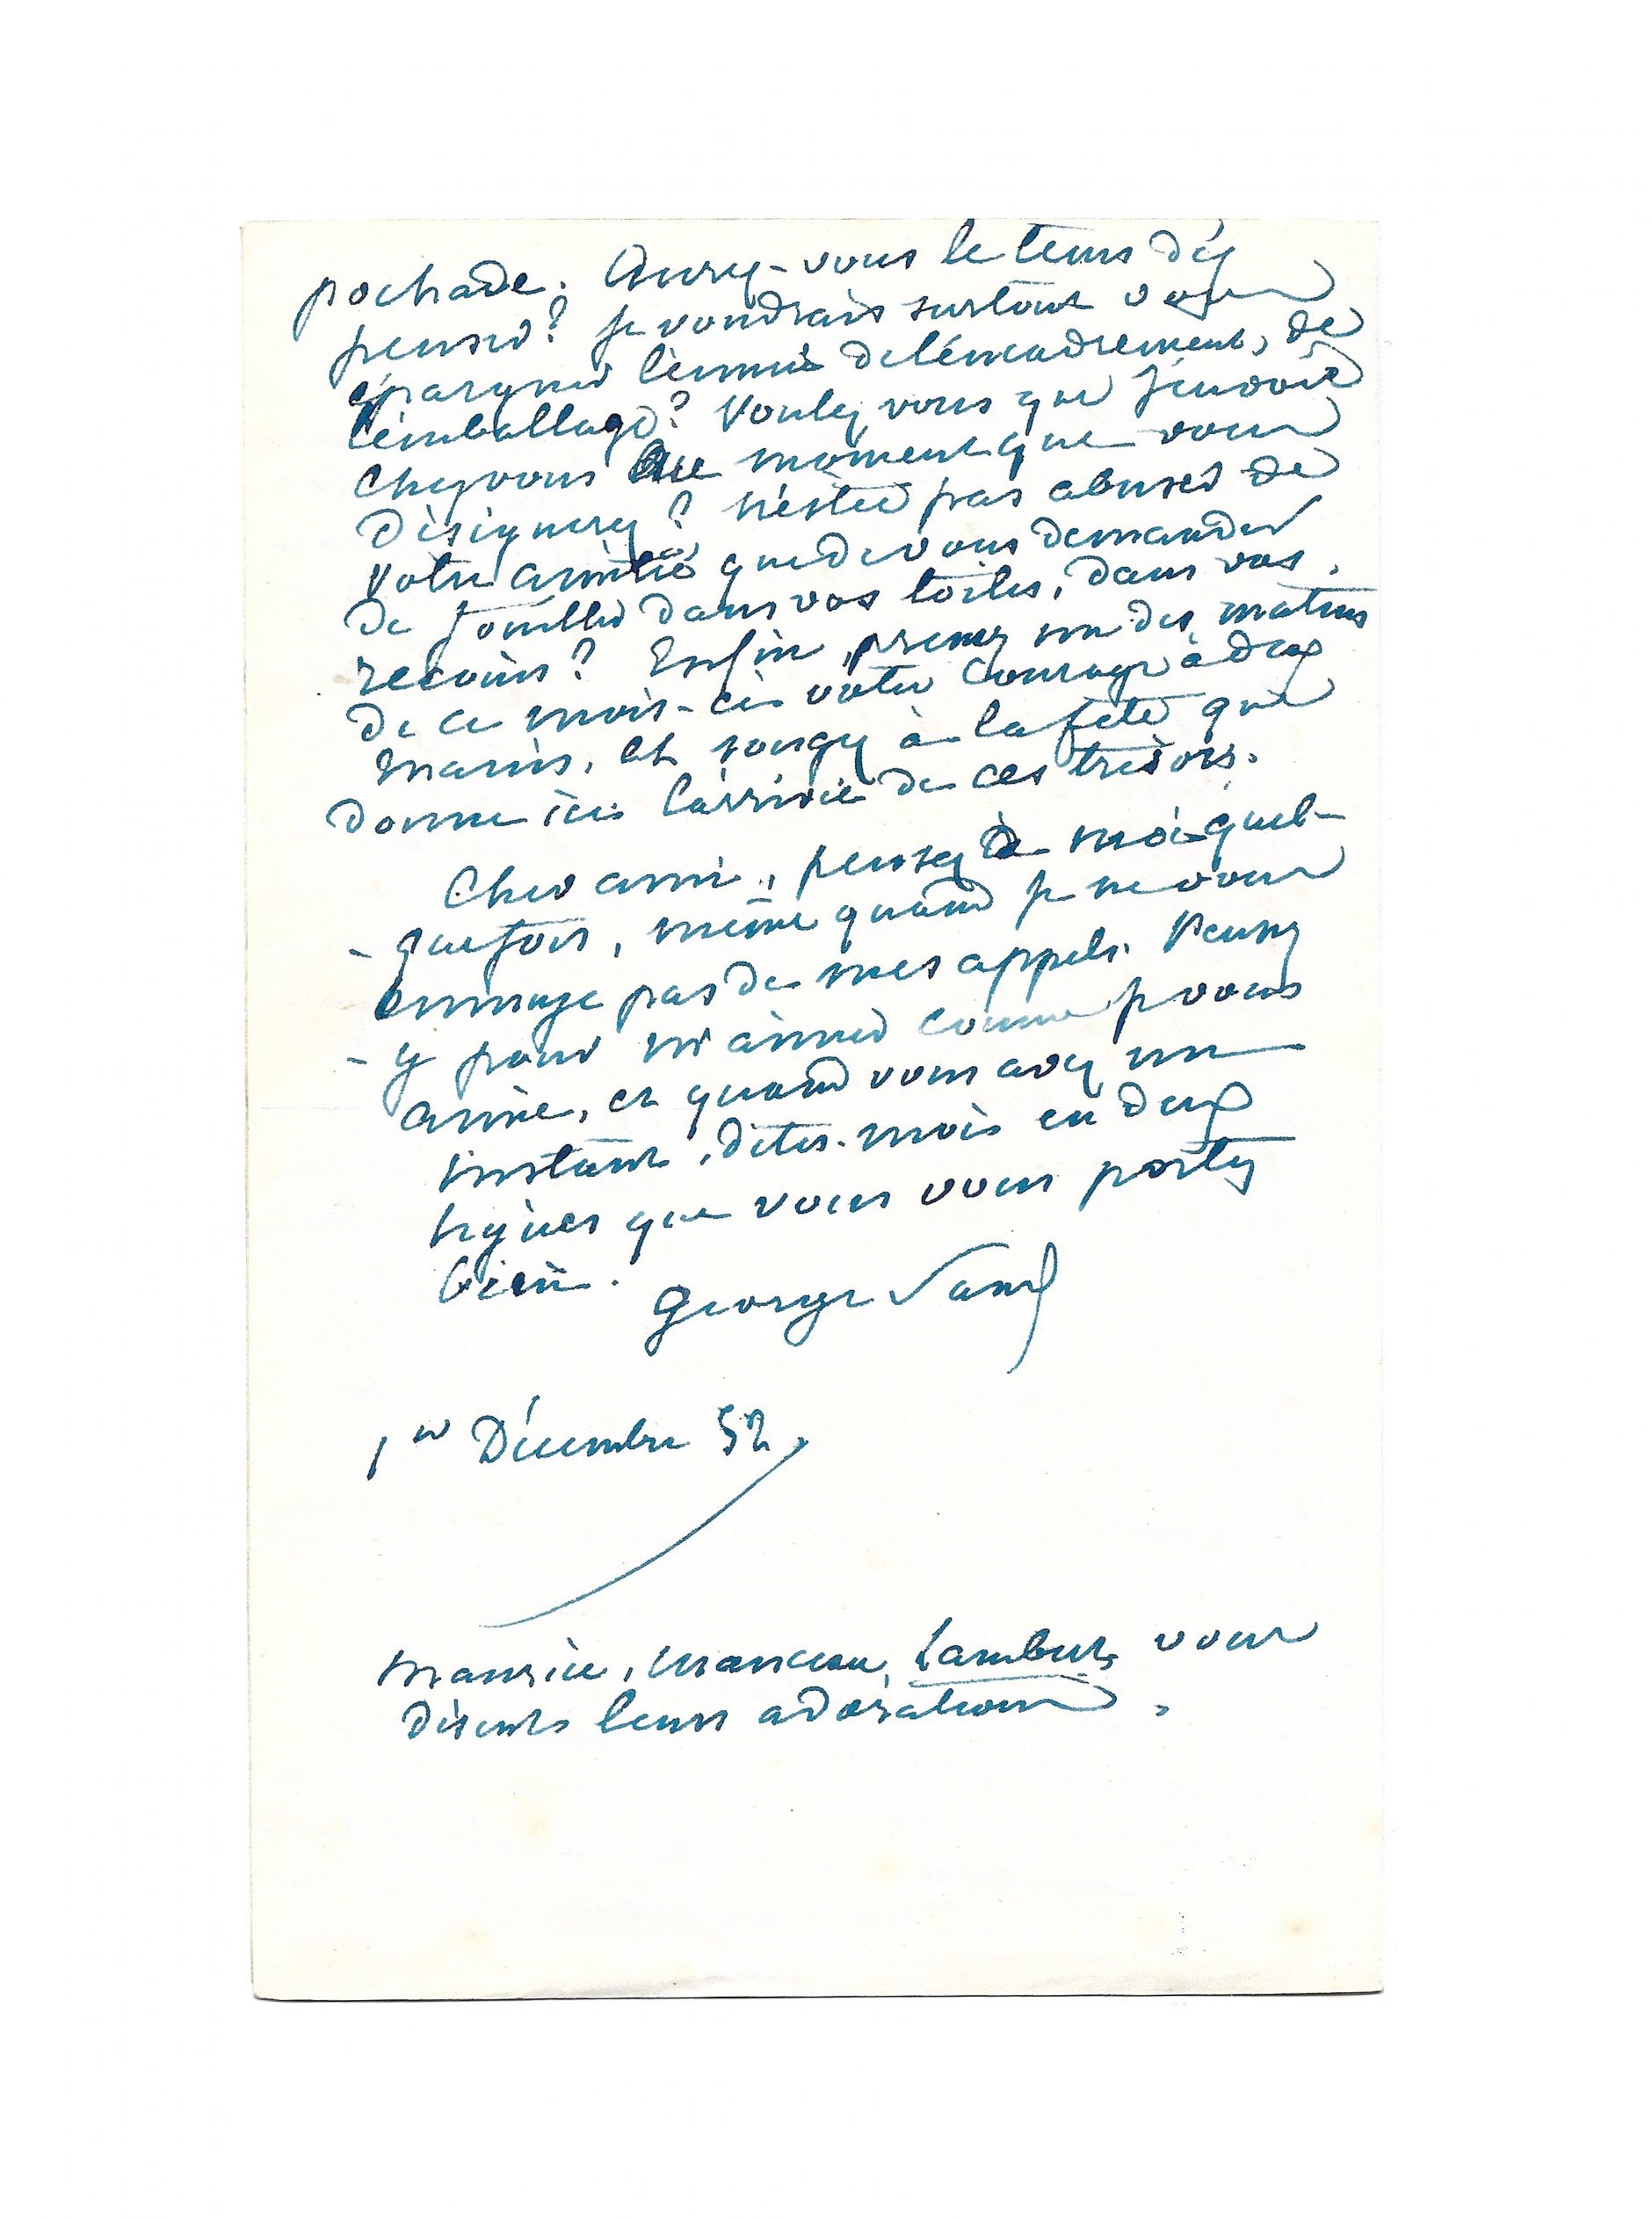 pochade. Aurez-vous le tems d'y
penser? Je voudrais surtout vous
épargner l'ennui de l'encadrement, de
l'emballage? Voulez vous que j'envoie
chez vous au moment que vous
désignerez? N'est ce pas abuser de
votre amitié que de vous demander
de fouiller dans vos toiles, dans vos
recoins? Enfin, prenez un des matins
de ce mois-ci votre courage à deux
mains, et songez à la fête que
donne ici l'arrivée de ces trésors.
Cher ami, pensez à moi quel-
-quefois, même quand je ne vous
ennuye pas de mes appels. Pensez
-y pour m'aimer comme je vous
aime, et quand vous avez un
instant, dites-moi en deux
lignes que vous vous portez
bien.
George Sand
1er Décembre 52
Maurice, Manceau, Lambert vous
disent leurs adorations.